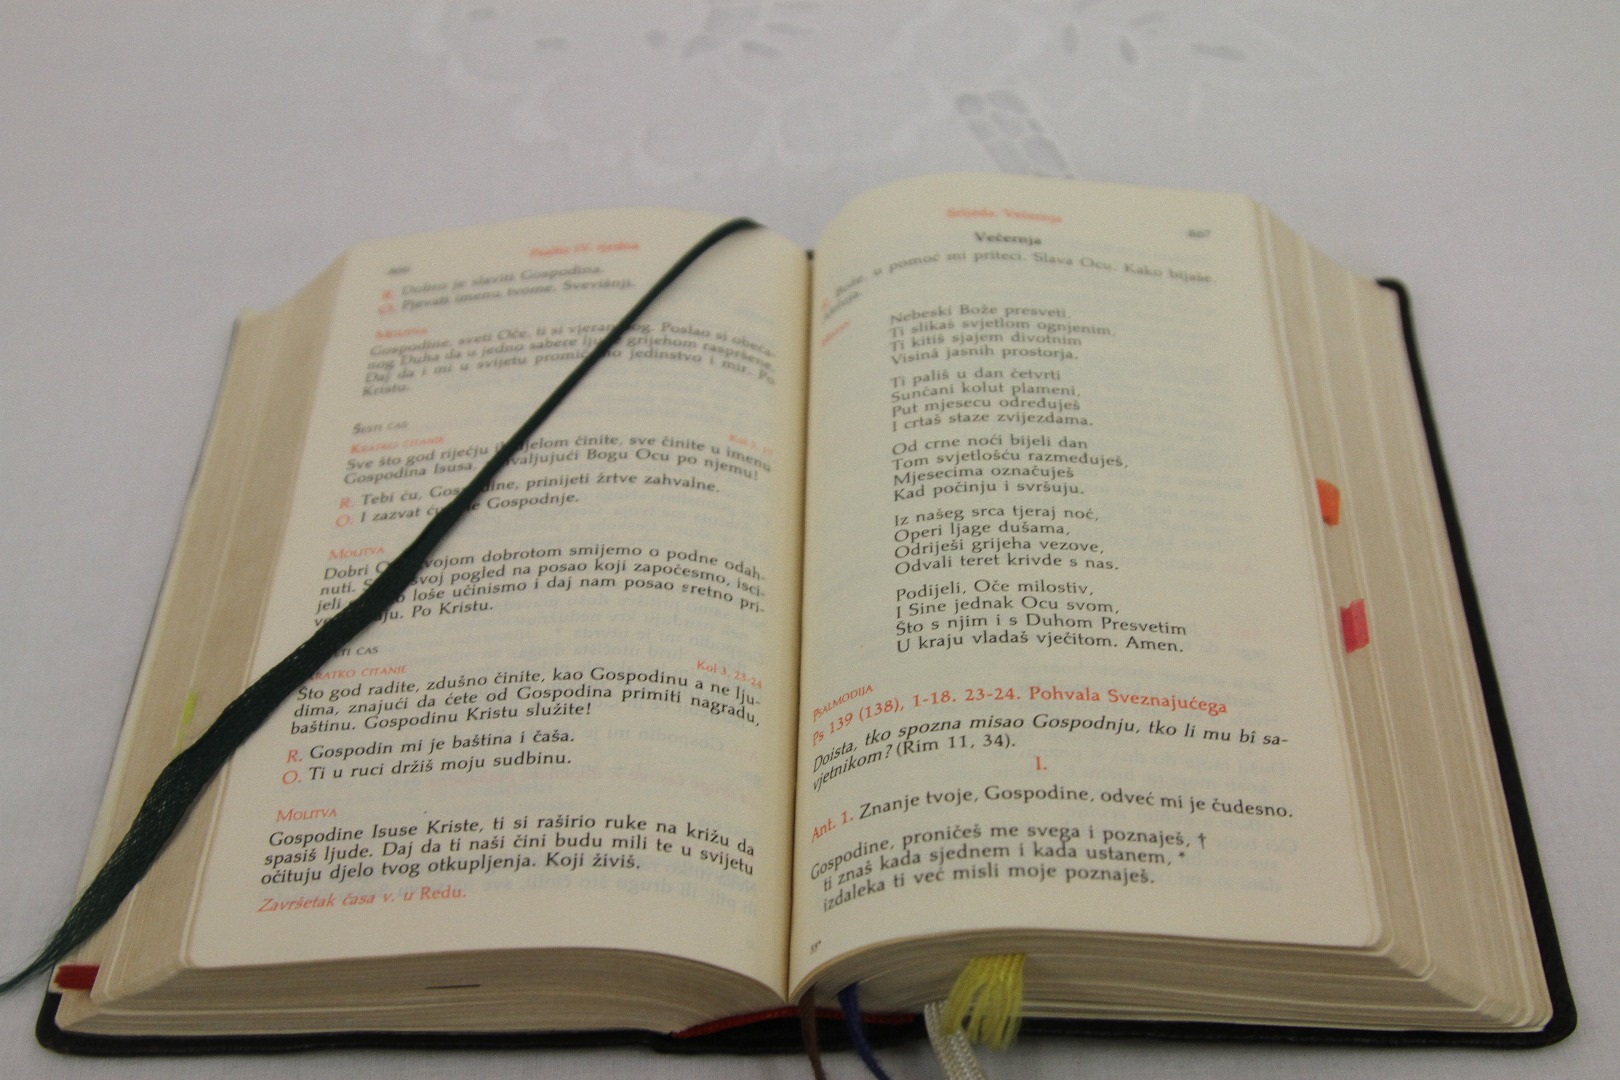 Psaltir IV. tjedna
R. Dobro je slaviti Gospodina.
O. Pjevati imenu tvome, Svevišnji.
MOLITVA
Gospodine, sveti Oče, ti si vjeran Poslao si obeća-
nog Duha da u jedno sabere grijehom raspršene.
Daj da i mi u svijetu jedinstvo i mir. Po
Kristu.
ŠESTI ČAS
KRATKO ČITANJE Kol 3, 17
Sve što god riječju činite, sve činite u imenu
Gospodina Isusa, Bogu Ocu po njemu!
R. Tebi ću, prinijeti žrtve zahvalne.
O. I zazvat Gospodnje.
MOLITVA
Dobri dobrotom smijemo o podne odah-
nuti. svoj pogled na posao koji započesmo, isci-
jeli loše učinismo i daj nam posao sretno pri-
Po Kristu.
ČAS
KRATKO ČITANJE Kol 3, 23-24
Što god radite, zdušno činite, kao Gospodinu a ne lju-
dima, znajući da ćete od Gospodina primiti nagradu,
baštinu. Gospodinu Kristu služite!
R. Gospodin mi je baština i čaša.
O. Ti u ruci držiš moju sudbinu.
MOLITVA
Gospodine Isuse Kriste, ti si raširio ruke na križu da
spasiš ljude. Daj da ti naši čini budu mili te u svijetu
očituju djelo tvog otkupljenja. Koji živiš.
Završetak časa v. u Redu.
Srijeda. Večernja 867
Večernja
R. Bože, u pomoć mi priteci. Slava Ocu. Kako bijaše
Aleluja.
Nebeski Bože presveti,
Ti slikaš svjetlom ognjenim,
Ti kitiš sjajem divotnim
Visinâ jasnih prostorja.
Ti pališ u dan četvrti
Sunčani kolut plameni,
Put mjesecu određuješ
I crtaš staze zvijezdama.
Od crne noći bijeli dan
Tom svjetlošću razmeđuješ,
Mjesecima označuješ
Kad počinju i svršuju.
Iz našeg srca tjeraj noć,
Operi ljage dušama,
Odriješi grijeha vezove,
Odvali teret krivde s nas.
Podijeli, Oče milostiv,
I Sine jednak Ocu svom,
Što s njim i s Duhom Presvetim
U kraju vladaš vječitom. Amen.
PSALMODIJA
Ps 139 (138), 1-18. 23-24. Pohvala Sveznajućega
Doista, tko spozna misao Gospodnju, tko li mu bî sa-
vjetnikom? (Rim 11, 34).
I.
Ant. 1. Znanje tvoje, Gospodine, odveć mi je čudesno.
Gospodine, proničeš me svega i poznaješ, †
ti znaš kada sjednem i kada ustanem, *
izdaleka ti već misli moje poznaješ.